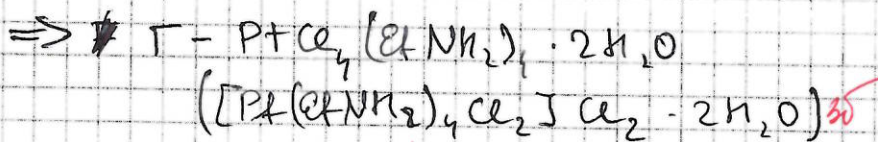 => Г - PtCl₄(EtNH₂)₄ · 2H₂O
([Pt(EtNH₂)₄Cl₂]Cl₂ · 2H₂O) 3б